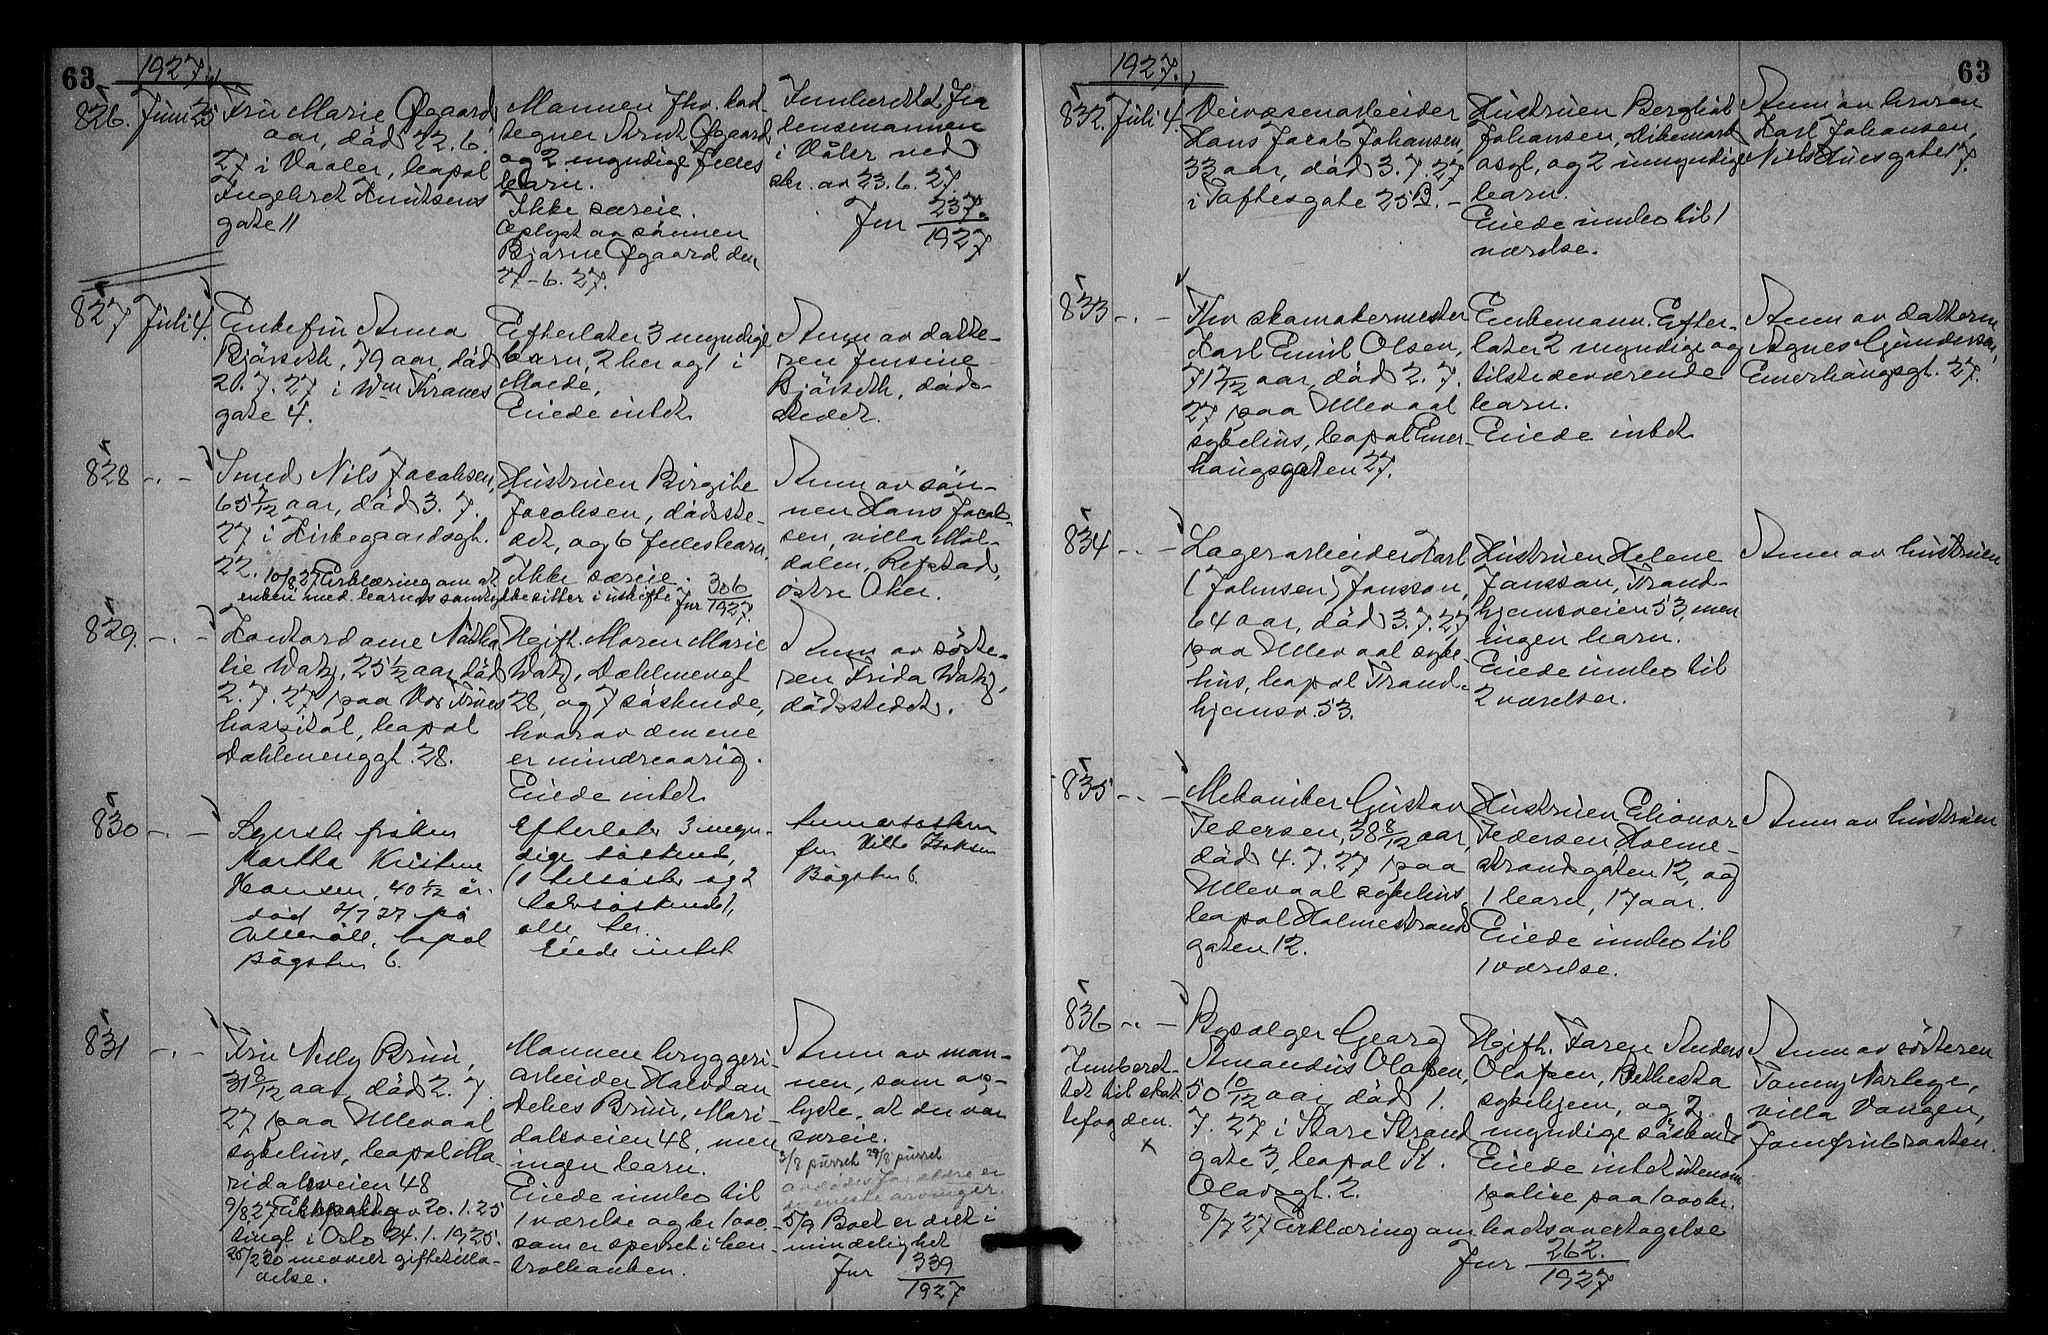 63
1927
826. Juni 25
Fru Marie Øgaard
aar, död 22.6.
27 i Vaaler, bopæl
Ingebret Knutsens
gate 11
Mannen Fhv.
tegner Arnt Øgaard
og 2 myndige fælles
barn.
Ikke særeie.
Oplyst av sönnen
Bjarne Øgaard den
27-6.27.
Innberettet fra
lensmannen
i Våler ved
skr. av 23.6.27.
Jnr 237/1927
827 Juli 4.
Enkefru Anna
Bjørseth, 79 aar, död
2.7.27 i Wm Thranes
gate 4.
Efterlater 3 myndige
barn, 2 her og 1 i
Molde.
Eiede intet
Anm av datte-
ren Jensine
Bjørseth, döds-
stedet.
828 -.-
Smed Nils Jacobsen,
65 7/12 aar, död 3.7.
27 i Kirkegaardsgt.
22.
10/8 27 Erklæring om at
enken med barnas samtykke sitter i uskifte Jnr 306/1927
Hustruen Birgitte
Jacobsen, dödste-
det, og 6 fællesbarn.
Ikke særeie.
Anm av sön-
nen Hans Jacob-
sen, villa Mol-
dalen, Refstad,
östre Aker.
829. -.-
Kontordame Natha
lie Watz, 25 1/2 aar, död
2.7.27 paa Vor Frues
hospital, bopæl
Dæhlenenggt. 28.
Ugift. Moren Marie
Watz, Dæhlenengt
28, og 7 söskende,
hvorav den ene
er mindreaarig.
Eiede intet
Anm av söste-
ren Frida Watz,
dödsstedet.
830 -.-
Syerske fröken
Martha Kristine
Hansen, 40 1/12 år.
död 2/7 27 på
Ullevåll, bopæl
Bögaten 6.
Efterlater 3 myn-
dige söskend,
(1 helsöster og 2
halvsöskend),
alle her.
Eiede intet
fru Hilda
Bögaten 6.
831 -.-
Fru Nelly Bruu,
31 8/12 aar, död 2.7.
27 paa Ullevaal
sykehus, bopæl Ma-
ridalsveien 48
9/8 27 Ektepakt av 20.1.25
tingl. i Oslo 24.1.1925.
Mannen bryggeri-
arbeider Halvdan
Bruu, Mari-
dalsveien 48, men
ingen barn.
Eiede innbo til
1 værelse og kr 1000.
som er sperret i Cen-
tralbanken.
Anm av man-
nen, som op-
lyste, at der var
særeie.
3/8 purret 29/8 purret
5/9 Boet er ordnet i
mindelighet
Jnr 339/1927
1927.
63
832. Juli 4.
Veivæsenarbeider
Hans Jacob Johansen,
33 aar, död 3.7.27
i Toftesgate 25B. -
Hustruen Bergliot
Johansen, Dikemark
asyl, og 2 umyndige
barn.
Eiede innbo til 1
værelse.
Anm av broren
Karl Johansen,
Niels Huusgate 7.
833 -.-
Fhv skomakermester
Karl Emil Olsen,
71 9/12 aar, död 2.7.
27 paa Ullevaal
sykehus, bopæl Ener-
haugsgaten 27.
Enkemann. Efter-
later 2 myndige og
tilstedeværende
barn.
Eiede intet
Anm av datteren
Agnes Gundersen,
Enerhaugsgt. 27.
834 -.-
Lagerarbeider Karl
(Johnsen) Jonsson,
64 aar, död 3.7.27
paa Ullevaal syke-
hus, bopæl Trond-
hjemsv. 53.
Hustruen Helene
Jonsson, Trond-
hjemsveien 53, men
ingen barn.
Eiede innbo til
2 værelser.
Anm av hustruen
835 -.-
Mekaniker Gustav
Pedersen, 38 8/12 aar,
död 4.7.27 paa
Ullevaal sykehus,
bopæl Holmestrand
gaten 12.
Hustruen Elionor
Pedersen, Holme-
strandsgaten 12, og
1 barn, 17 aar.
Eiede innbo til
1 værelse.
Anm av hustruen
836 -.-
Innberet-
tet til skat
tefogden.
x
Bysælger Georg
Amandus Olafsen,
50 10/12 aar, död 1.
7.27 i Store Strand
gate 3, bopæl St.
Olavsgt. 2.
8/7 27 Erklæring om bootsovertagelse
Jnr 262./1927
Ugift. Faren Anders
Olafsen, Bethesta
sykehjem, og 2
myndige söskende
Eiede intet utenom
1 police paa 1000 kr.
Anm av sösteren
villa Vangen,
Jomfrubraaten.